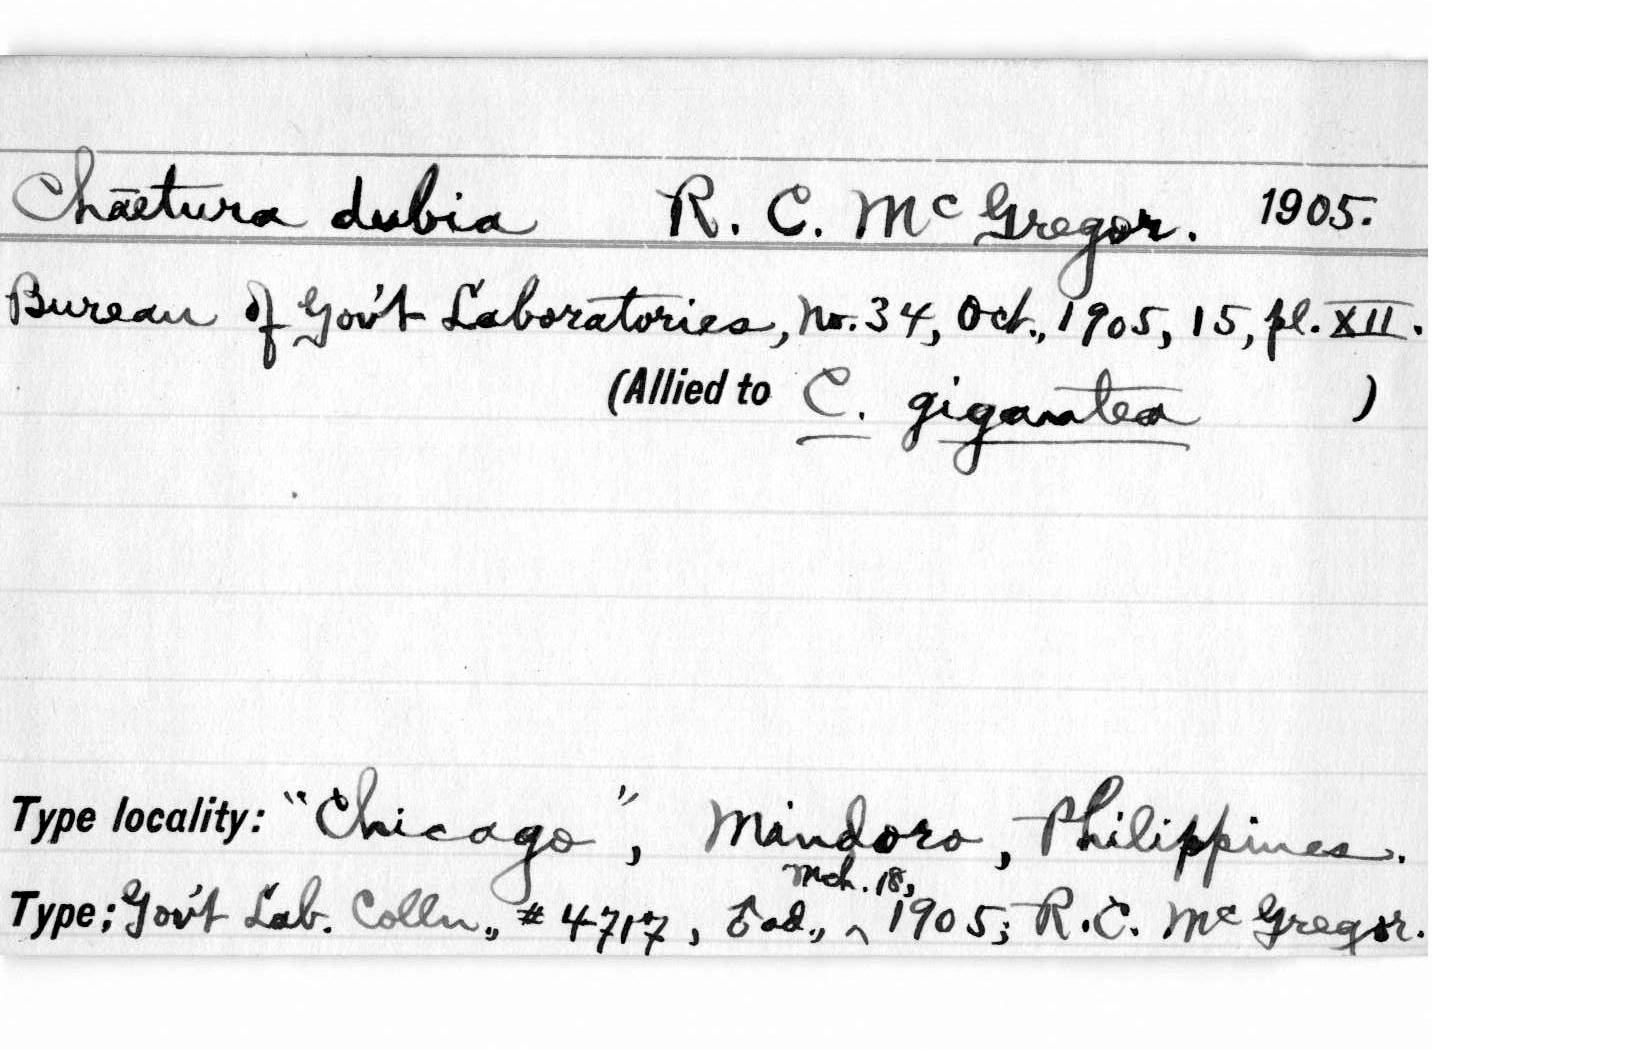 Chāetura dubia R. C. McGregor. 1905.
Bureau of Gov't Laboratories, No. 34, Oct., 1905, 15, pl. XII.
(Allied to C. gigantea )
Type locality: "Chicago", Mindoro, Philippines.
Mch. 18,
Type; Gov't Lab. Colln., # 4717, ♂ ad., ^ 1905; R.C. McGregor.